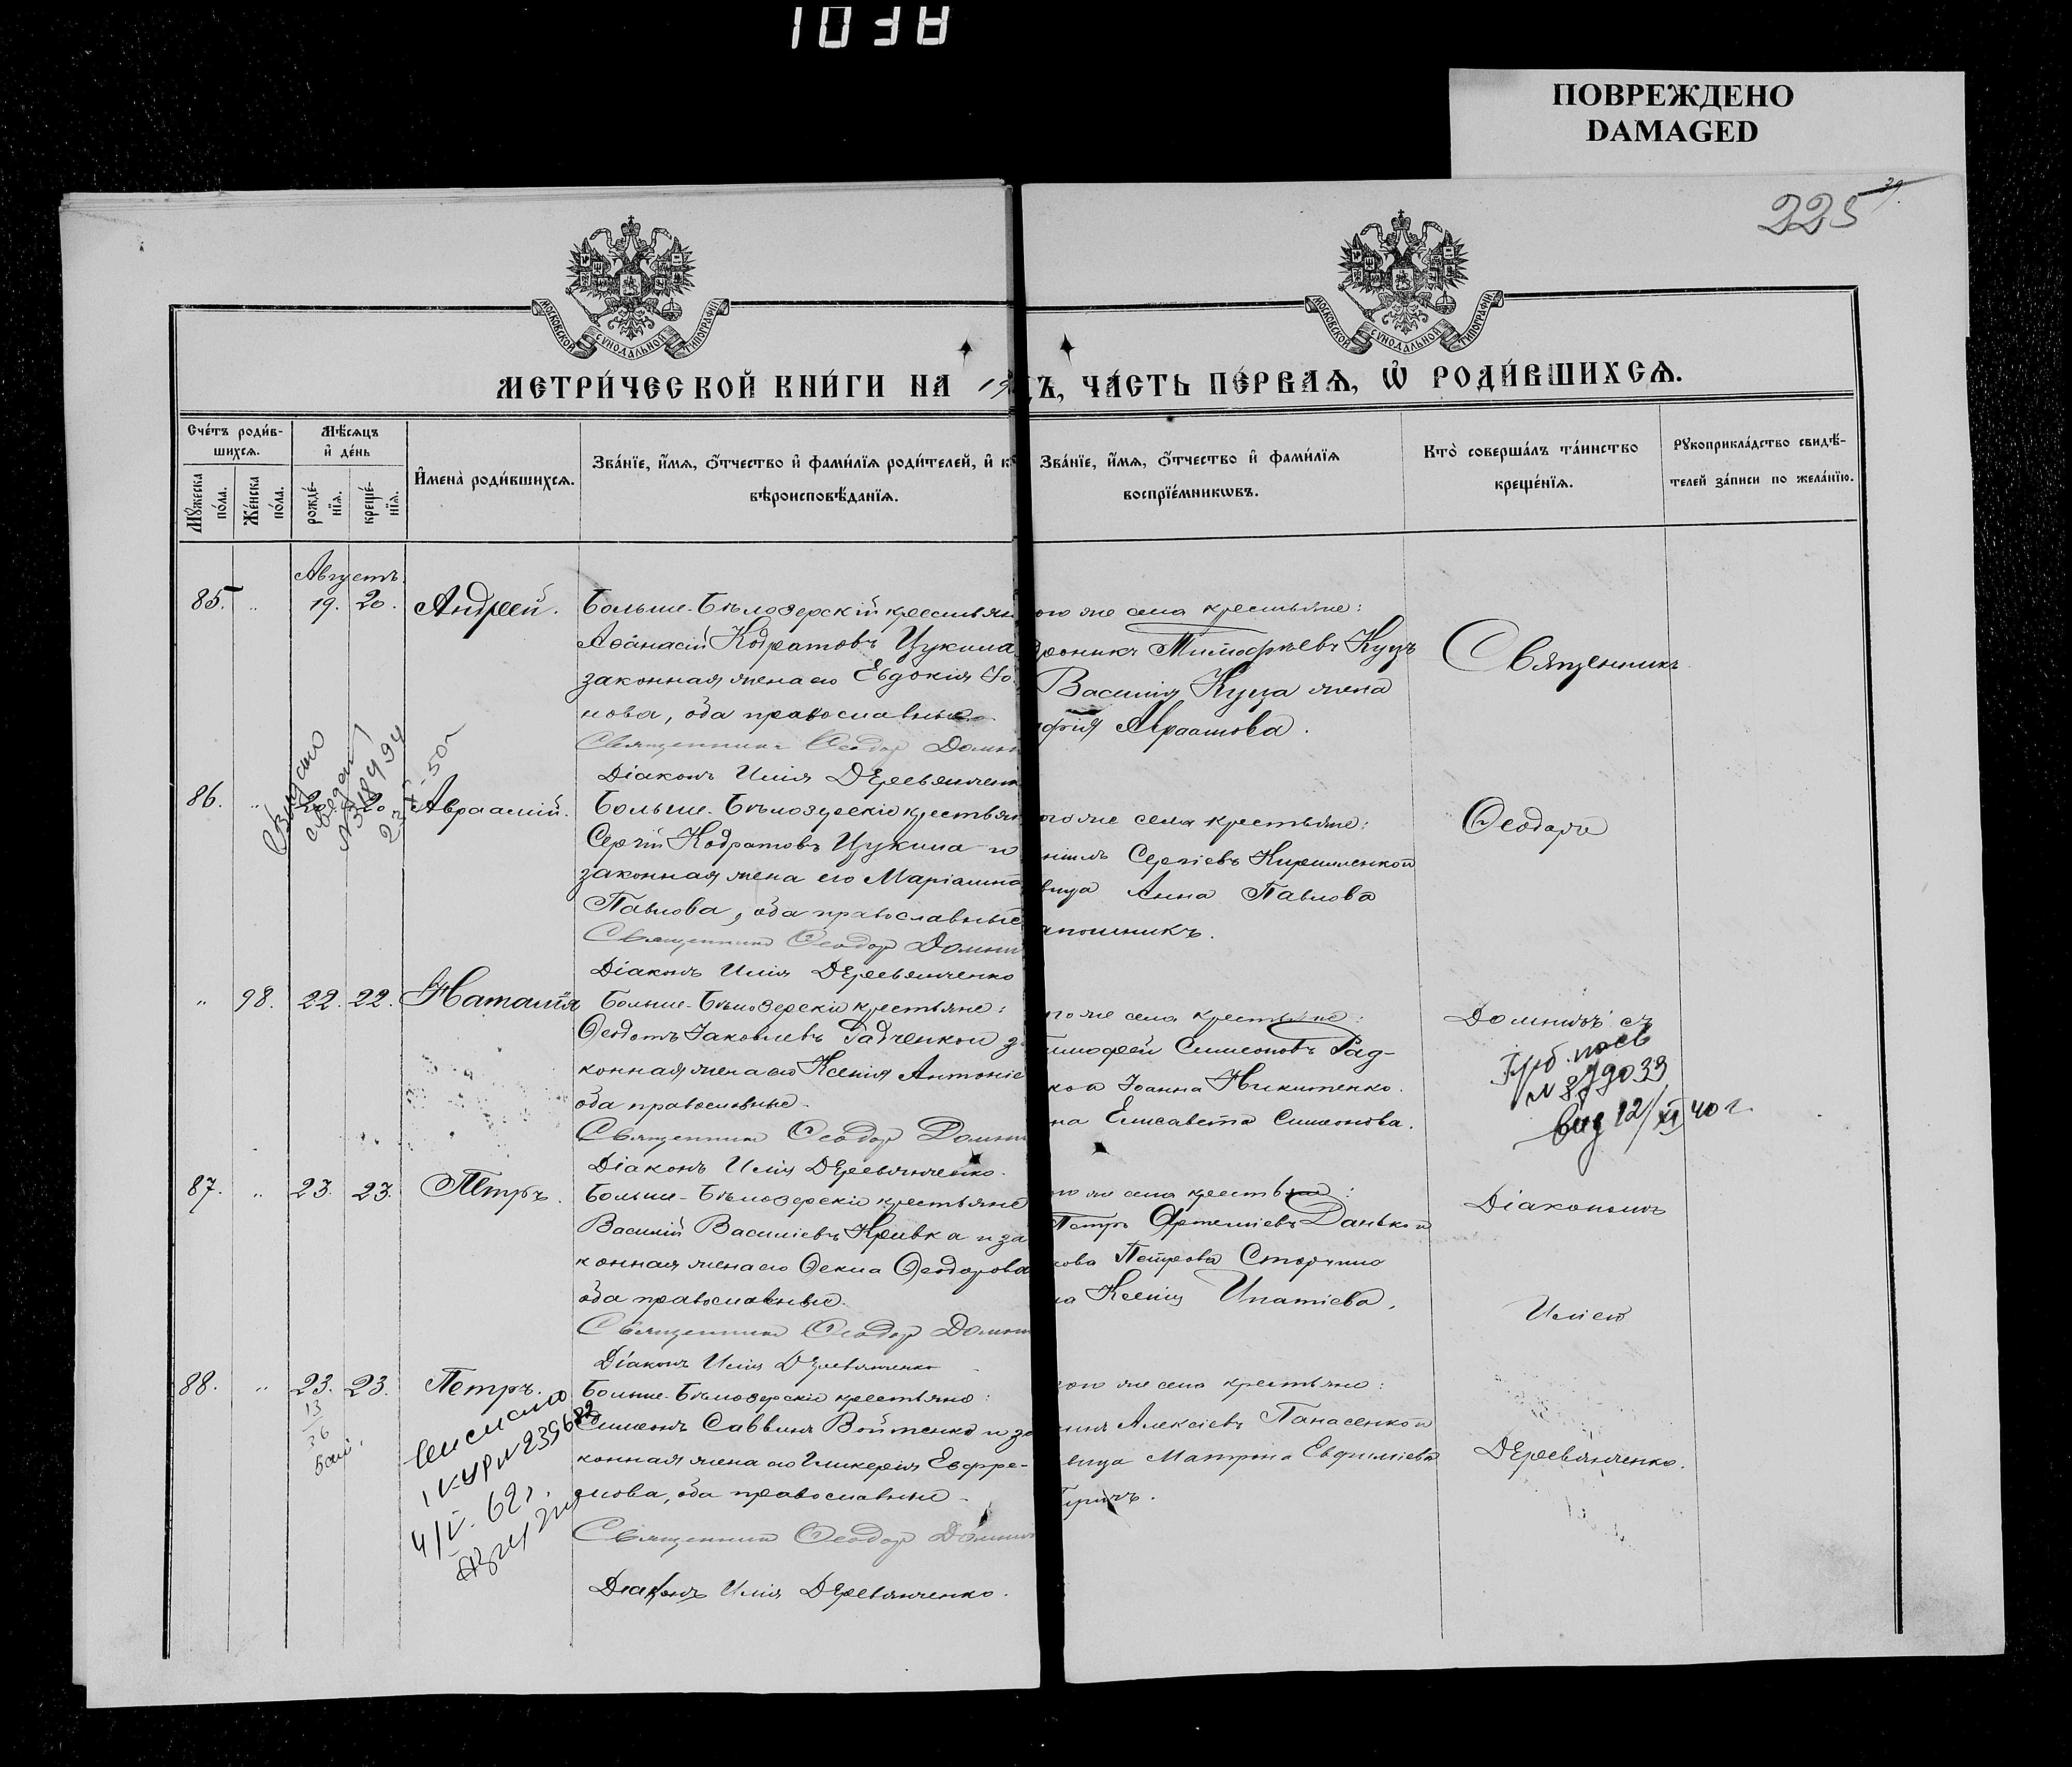 ПОВРЕЖДЕНО
DAMAGED
225
39.
МОСКОВСКОЙ СѴНОДАЛЬНОЙ ТИПОГРАФІИ
МОСКОВСКОЙ СѴНОДАЛЬНОЙ ТИПОГРАФІИ
МЕТРИ́ЧЕСКОЙ КНИ́ГИ НА 19
Ъ, ЧА́СТЬ ПЕ́РВАѦ, Ѡ҆ РОДИ́ВШИХСѦ.
Сче́тъ роди́в-
шихсѧ.
Мѣ́сѧцъ
и҆ де́нь
Мꙋ́жеска по́ла.
Же́нска по́ла.
рожде́-
нїѧ.
креще́-
нїѧ.
И҆мена̀ роди́вшихсѧ.
Зва́нїе, и҆́мѧ, ѻ҆́тчество и҆ фами́лїѧ роди́телей, и҆ к
вѣроисповѣ́данїѧ.
Зва́нїе, и҆́мѧ, ѻ҆́тчество и҆ фами́лїѧ
воспрїе́мникѡвъ.
Кто̀ соверша́лъ та́инство
креще́нїѧ.
Рꙋкоприкла́дство свидѣ́-
телей за́писи по жела́нїю.
Августъ.
85. " 19. 20. Андрей. Больше-Бѣлозерскій крестьян
Аѳанасій Кодратовъ Цукина
законная жена его Евдокія Іо-
нова, оба православные.
Священникъ Ѳеодор Домни
Діаконъ Илія Деревянченк
ого же села крестьяне:
дроникъ Тимофѣевъ Куцъ
Василія Куца жена
офія Авраамова.
Священникъ
86. " 20. 20. Авраамій. Больше-Бѣлозерскіе крестьян
Сергій Кодратовъ Цукина и
законная жена его Маріамна
Павлова, оба православные
Священникъ Ѳеодор Домни
Діаконъ Илія Деревянченко
ого же села крестьяне:
ніилъ Сергіевъ Кириленко и
вица Анна Павлова
апошникъ.
Ѳеодоръ
" 98. 22. 22. Наталія Больше-Бѣлозерскіе крестьяне:
Ѳеодотъ Іаковлевъ Радченко и з
конная жена его Ксенія Антоніе
оба православные.
Священникъ Ѳеодор Домни
Діаконъ Илія Деревянченко.
ого же села крестьяне:
имофей Симеоновъ Рад-
ко и Іоанна Никитенко
на Елисавета Симеонова.
Домничъ съ
№ 879033
выд 12/XI 40 г.
87. " 23. 23. Петръ. Больше-Бѣлозерскіе крестьяне
Василій Василіевъ Кривка и за
конная жена его Ѳекла Ѳеодорова
оба православные.
Священникъ Ѳеодор Домни
Діаконъ Илія Деревянченко
ого же села крестьяне:
Петръ Артеміевъ Данько и
кова Петрова Сторчило
на Ксенія Ипатіева.
Діакономъ
Иліею
88. " 23. 23. Петръ. Больше-Бѣлозерскіе крестьяне:
Симеонъ Саввинъ Войтенко и за
конная жена его Гликерія Ефре-
мова, оба православные.
Священникъ Ѳеодор Домни
Діаконъ Илія Деревянченко.
того же села крестьяне:
Алексіевъ Панасенко и
вица Матрона Евфиміева
Деревянченко.
13
36
4/V. 62 г.